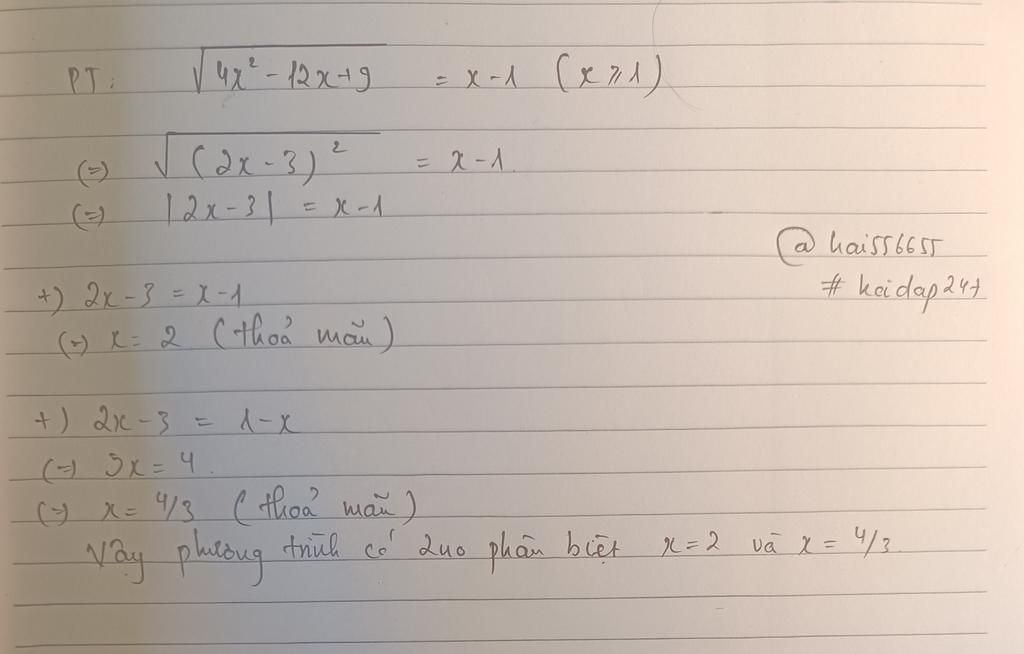 PT: √(4x² - 12x + 9) = x - 1 (x ⩾ 1)
(=) √((2x - 3)²) = x - 1
(=) |2x - 3| = x - 1
@hai556655
# hoidap247
+) 2x - 3 = x - 1
(=) x = 2 (thoả mãn)
+) 2x - 3 = 1 - x
(=) 3x = 4.
(=) x = 4/3 (thoả mãn)
Vậy phương trình có 2 no phân biệt x = 2 và x = 4/3